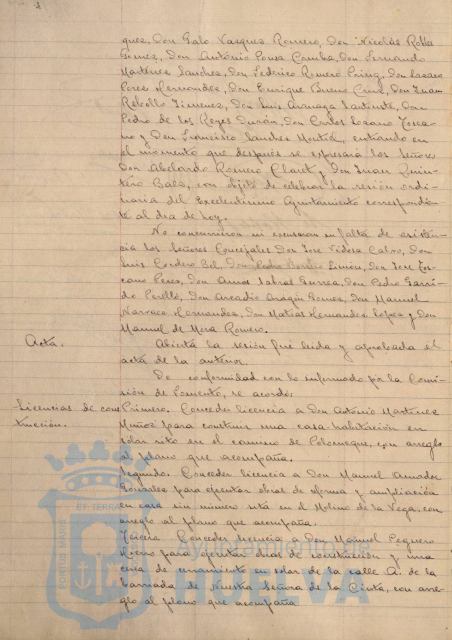 guez, Don Galo Vazquez Romero, Don Nicolás
Gomez, Don Antonio Ponce Don Fernando
Martinez Sanchez, Don Federico Romero Don Lazaro
Perez Hernandez, Don Enrique Bueno Cruz, Don Juan
Rebollo Jimenez, Don Luis Don
Pedro de los Reyes Durán, Don Carlos Lozano
no y Don Francisco Sanchez entrando en
el momento que después se expresará los Señores
Don Abelardo Romero Claret y Don Juan Quin-
tero Baez, con objeto de celebrar la sesión ordi-
naria del Excelentísimo Ayuntamiento correspondien
te al dia de hoy.
No concurrieron ni excusaron su falta de asisten
cia los Señores Concejales Don José Calvo, Don
Luis Cordero Bel, Don Pedro Borrero Limón, Don José
Perez, Don Amos Sabrás Gurrea, Don Pedro Garri-
do Perelló, Don Arcadio Aragón Gomez, Don Manuel
Hernandez, Don Matias Hernandez Lopez y Don
Manuel de Mora Romero.
Acta.
Abierta la sesión fué leida y aprobada el
acta de la anterior.
De conformidad con lo informado por la Comi
sión de Fomento, se acordó:
Licencias de cons
trucción.
Primero. Conceder licencia a Don Antonio Martinez
Muñoz para construir una casa habitación en
solar sito en el camino de con arreglo
al plano que acompaña.
Segundo. Conceder licencia a Don Manuel Amador
Gonzalez para ejecutar obras de reforma y ampliación
en casa sin número sita en el Molino de la Vega, con
arreglo al plano que acompaña.
Tercero. Conceder licencia a Don Manuel Peguero
para ejecutar obras de construcción y una
cerca de cerramiento en solar de la calle A. de la
barriada de Nuestra Señora de la Cinta, con arre-
glo al plano que acompaña
Ayuntamiento de
HUELVA
PORTUS MARIS ET TERRAE